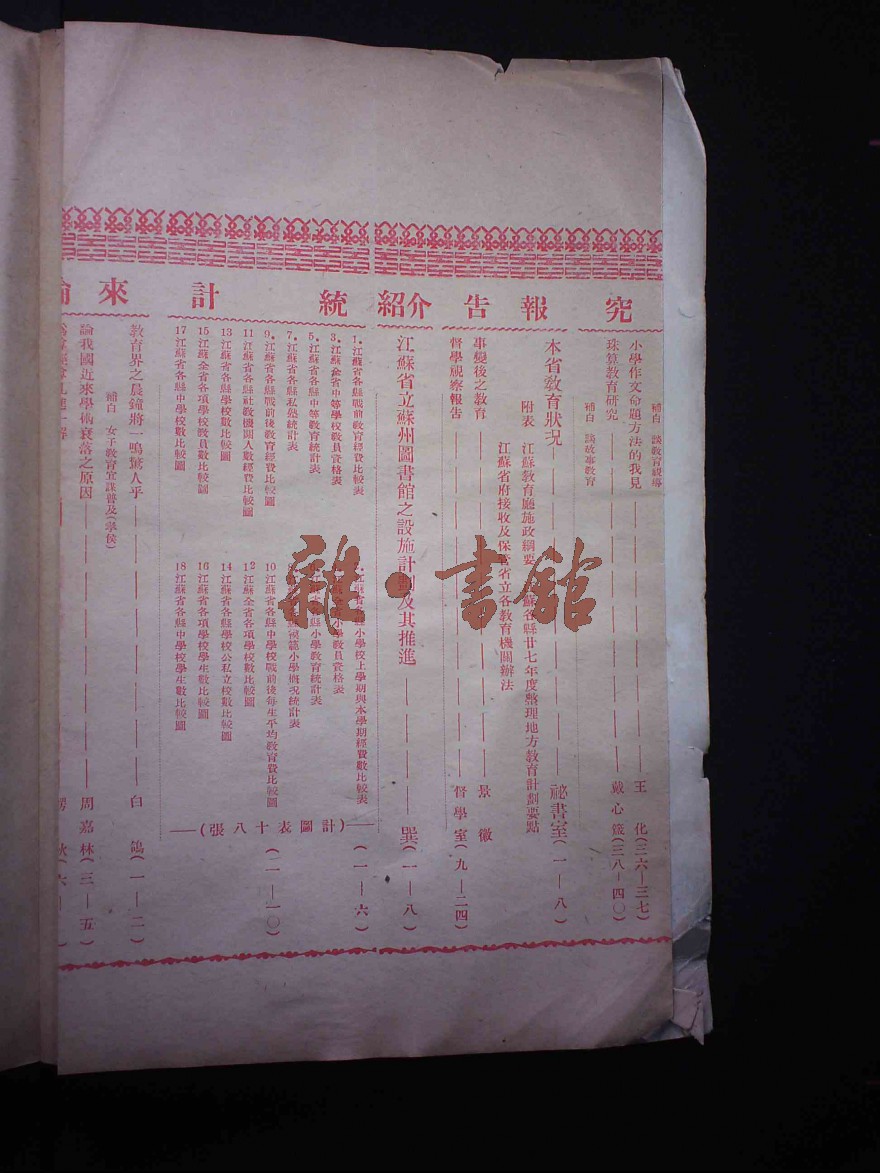 究
補白 談教育視導
小學作文命題方法的我見 王化(三六—三七)
珠算教育研究 戴心箴(三八—四〇)
補白 談故事教育
報告
本省教育狀況 祕書室(一—八)
附表 江蘇教育廳施政綱要 蘇各縣廿七年度整理地方教育計劃要點
江蘇省府接收及保管省立各教育機關辦法
事變後之教育 景徽
督學視察報告 督學室(九—二四)
介紹
江蘇省立蘇州圖書館之設施計劃及其推進 巽(一—八)
統計
1.江蘇省各縣戰前教育經費比較表
小學校上學期與本學期經費數比較表
3.江蘇全省中等學校教員資格表
小學教員資格表
5.江蘇省各縣中等教育統計表
江蘇省各縣小學教育統計表
7.江蘇省各縣私塾統計表
小學概況統計表
9.江蘇省各縣戰前後教育經費比較圖
10江蘇省各縣中學校戰前後每生平均教育費比較圖
11江蘇省各縣社教機關人數經費比較圖
12江蘇全省各項學校數比較圖
13江蘇省各縣學校數比較圖
14江蘇省各縣學校公私立校數比較圖
15江蘇全省各項學校教員數比較圖
16江蘇省各項學校學生數比較圖
17江蘇省各縣中學校數比較圖
18江蘇省各縣中學校學生數比較圖
(計圖表十八張)
(一—六)
(一—一〇)
來論
教育界之晨鐘將一鳴驚人乎 白鴿(一—二)
補白 女子教育宜謀普及(學侯)
論我國近來學術衰落之原因 周嘉林(三—五)
雜·書館